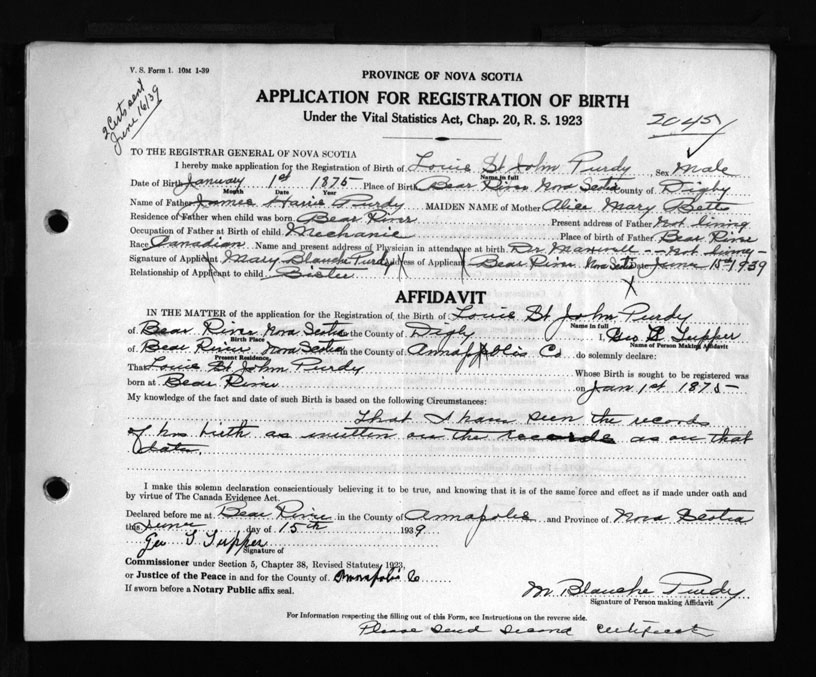 V. S. Form 1. 10M 1-39
2 Certs sent
June 16/39
PROVINCE OF NOVA SCOTIA
APPLICATION FOR REGISTRATION OF BIRTH
Under the Vital Statistics Act, Chap. 20, R. S. 1923
2045
TO THE REGISTRAR GENERAL OF NOVA SCOTIA
I hereby make application for the Registration of Birth of Louis St John Purdy Sex Male
Name in full
Date of Birth January 1st 1875 Place of Birth Bear River Nova Scotia County of Digby
Month Date Year
Name of Father James Harris Purdy MAIDEN NAME of Mother Alice Mary Betts
Residence of Father when child was born Bear River Present address of Father Not living
Occupation of Father at Birth of child Mechanic Place of birth of Father Bear River
Race Canadian Name and present address of Physician in attendance at birth. Dr. not living
Signature of Applicant Mary Blanche Purdy Address of Applicant Bear River Nova Scotia Date June 15th 1939
Relationship of Applicant to child Sister
AFFIDAVIT
IN THE MATTER of the application for the Registration of the Birth of Louis St John Purdy
Name in full
of Bear River Nova Scotia in the County of Digby I, Geo Tupper
Birth Place Name of Person Making Affidavit
of Bear River Nova Scotia in the County of Annapolis Co do solemnly declare:
Present Residence
That Louis St John Purdy Whose Birth is sought to be registered was
born at Bear River on Jan 1st 1875
My knowledge of the fact and date of such Birth is based on the following Circumstances:
That I have seen the records
of his birth as written on the records as on that
date.
I make this solemn declaration conscientiously believing it to be true, and knowing that it is of the same force and effect as if made under oath and
by virtue of The Canada Evidence Act.
Declared before me at Bear River in the County of Annapolis and Province of Nova Scotia
this June day of 15th 1939
Geo T Tupper
Signature of
Commissioner under Section 5, Chapter 38, Revised Statutes 1923,
or Justice of the Peace in and for the County of Annapolis Co
If sworn before a Notary Public affix seal.
M Blanche Purdy
Signature of Person making Affidavit
For Information respecting the filling out of this Form, see Instructions on the reverse side.
Please send second certificate